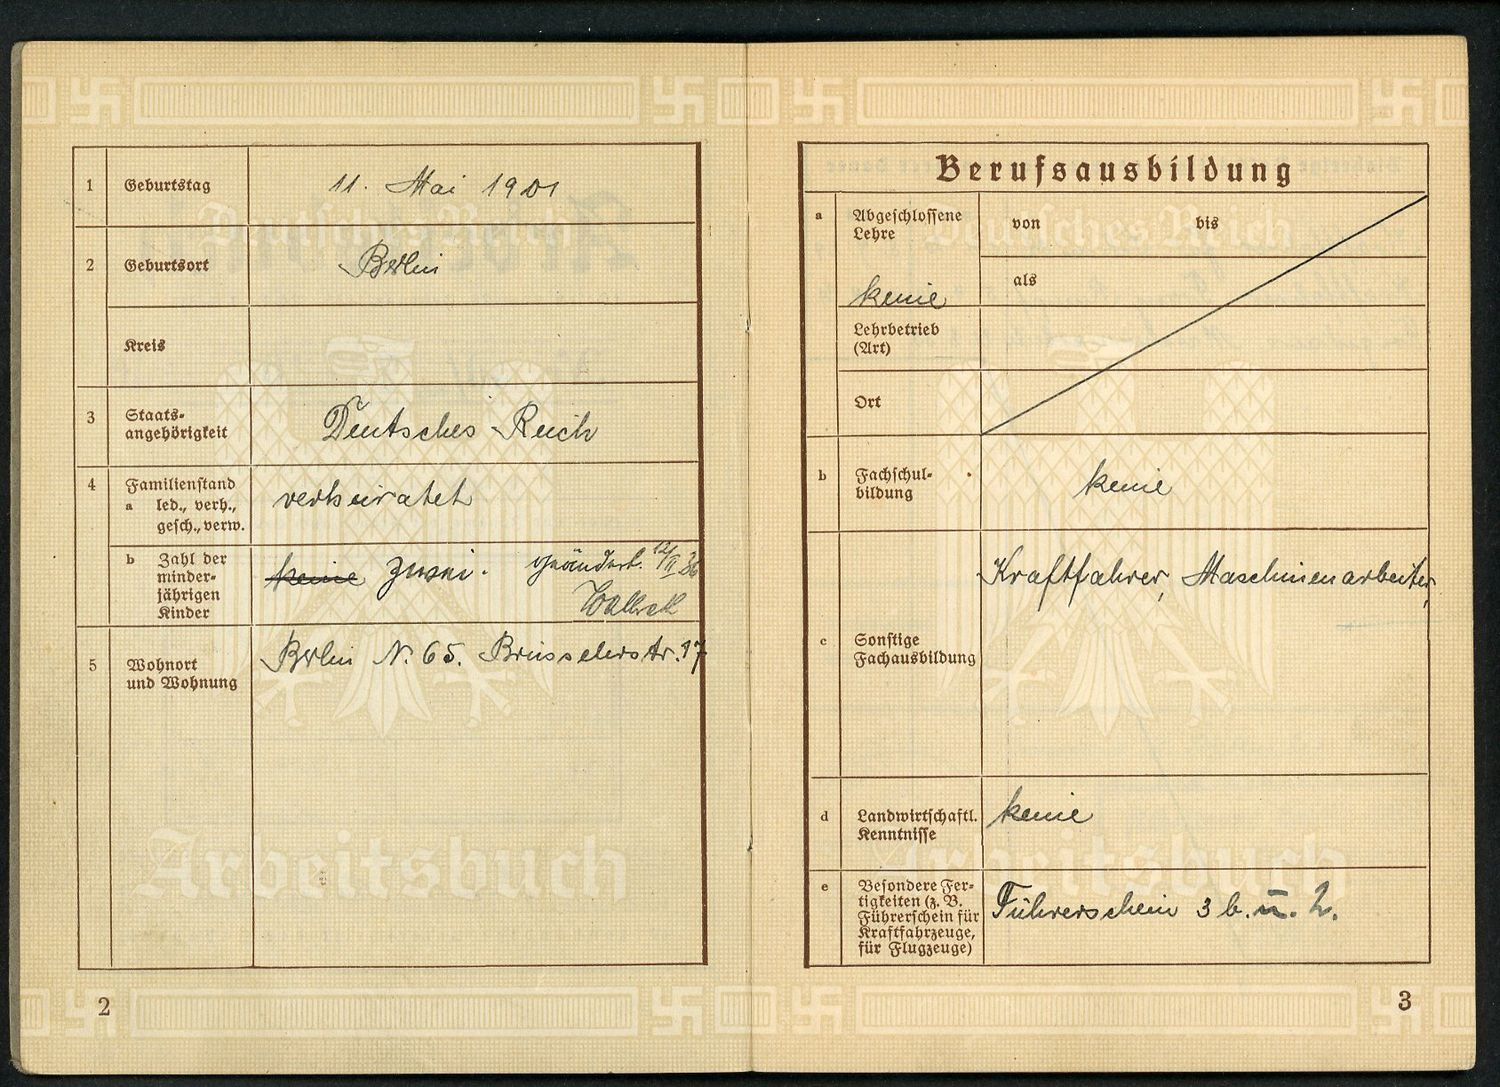 1 Geburtstag 11. Mai 1901
Deutsches Reich
2 Geburtsort Berlin
Kreis
3 Staats-
angehörigkeit Deutsches Reich
4 Familienstand
a led., verh.,
gesch., verw. verheiratet
b Zahl der
minder-
jährigen
Kinder keine zwei. geändert. 12/II 36
5 Wohnort
und Wohnung Berlin N. 65. Brüsselerstr. 17
Arbeitsbuch
2
Berufsausbildung
a Abgeschlossene
Lehre
keine
von bis
Deutsches Reich
als
Lehrbetrieb
(Art)
Ort
b Fachschul-
bildung keine
c Sonstige
Fachausbildung
Kraftfahrer, Maschinenarbeiter,
d Landwirtschaftl.
Kenntnisse keine
Arbeitsbuch
e Besondere Fer-
tigkeiten (z. B.
Führerschein für
Kraftfahrzeuge,
für Flugzeuge)
Führerschein 3 b. u. 2.
3